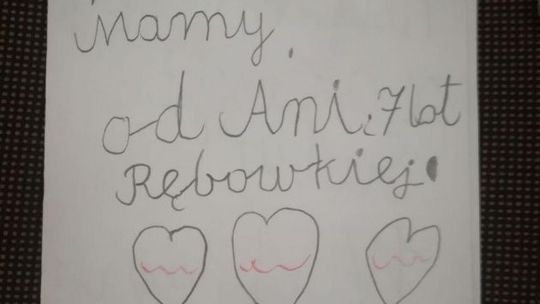 Mamy.
od Ani. 7 lat
Rębowkiej